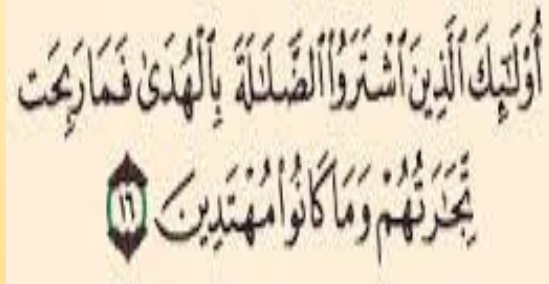 أُوْلَٰٓئِكَ ٱلَّذِينَ ٱشْتَرَوُاْ ٱلضَّلَٰلَةَ بِٱلْهُدَىٰ فَمَا رَبِحَت
تِّجَٰرَتُهُمْ وَمَا كَانُواْ مُهْتَدِينَ ١٦